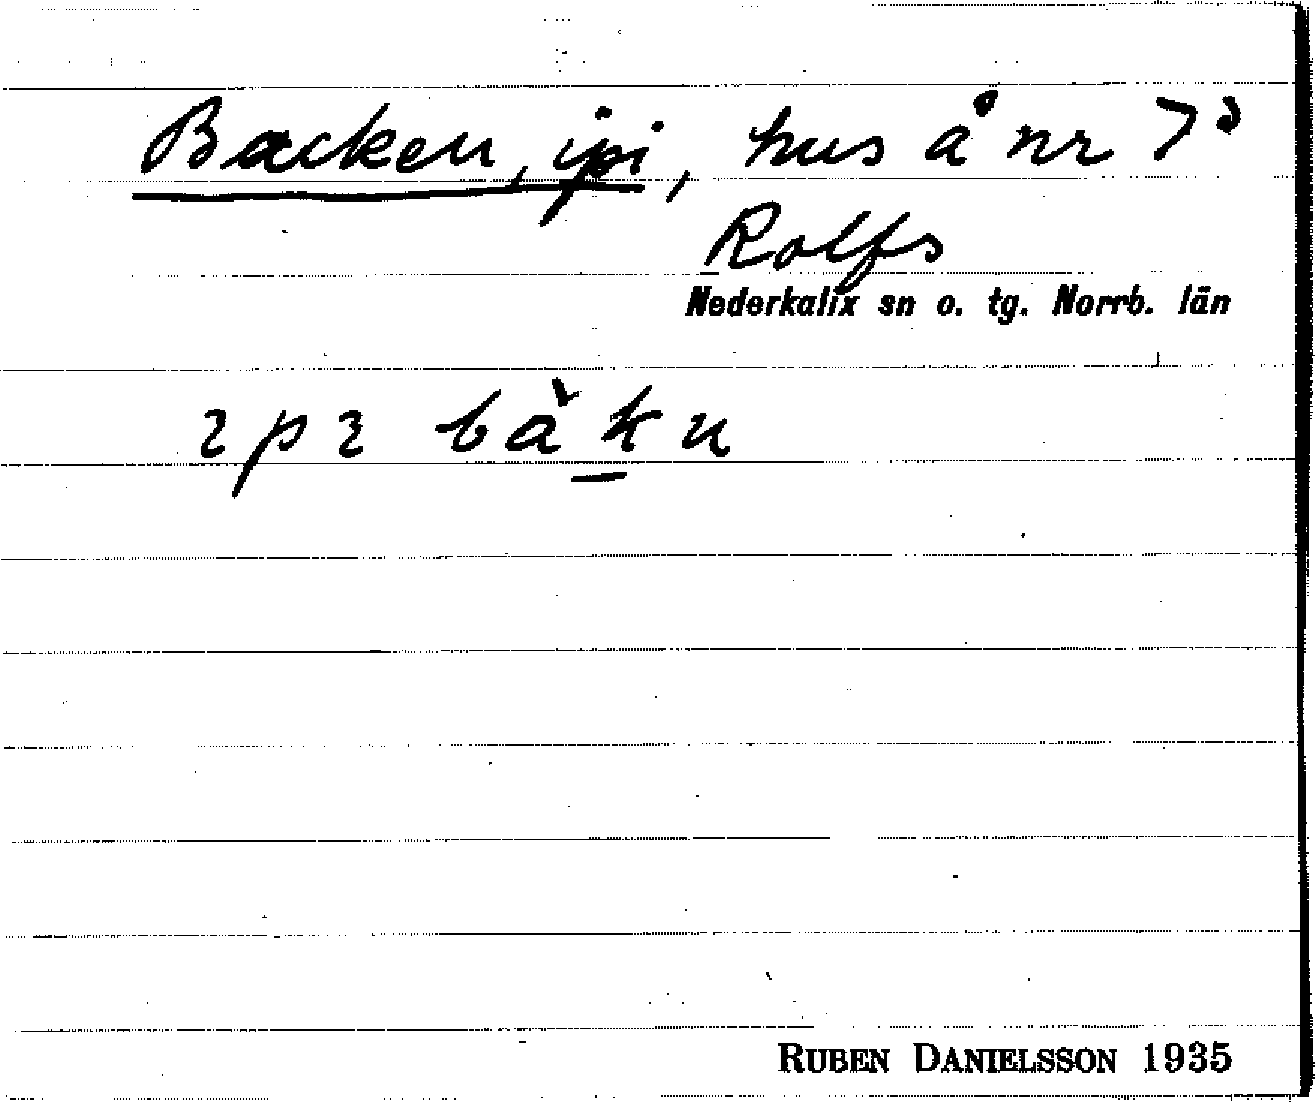 Backen, ipi, hus å nr 7³
Rolfs
Nederkalix sn o. tg. Norrb. län
ɩpɩ bàk̠u
RUBEN DANIELSSON 1935